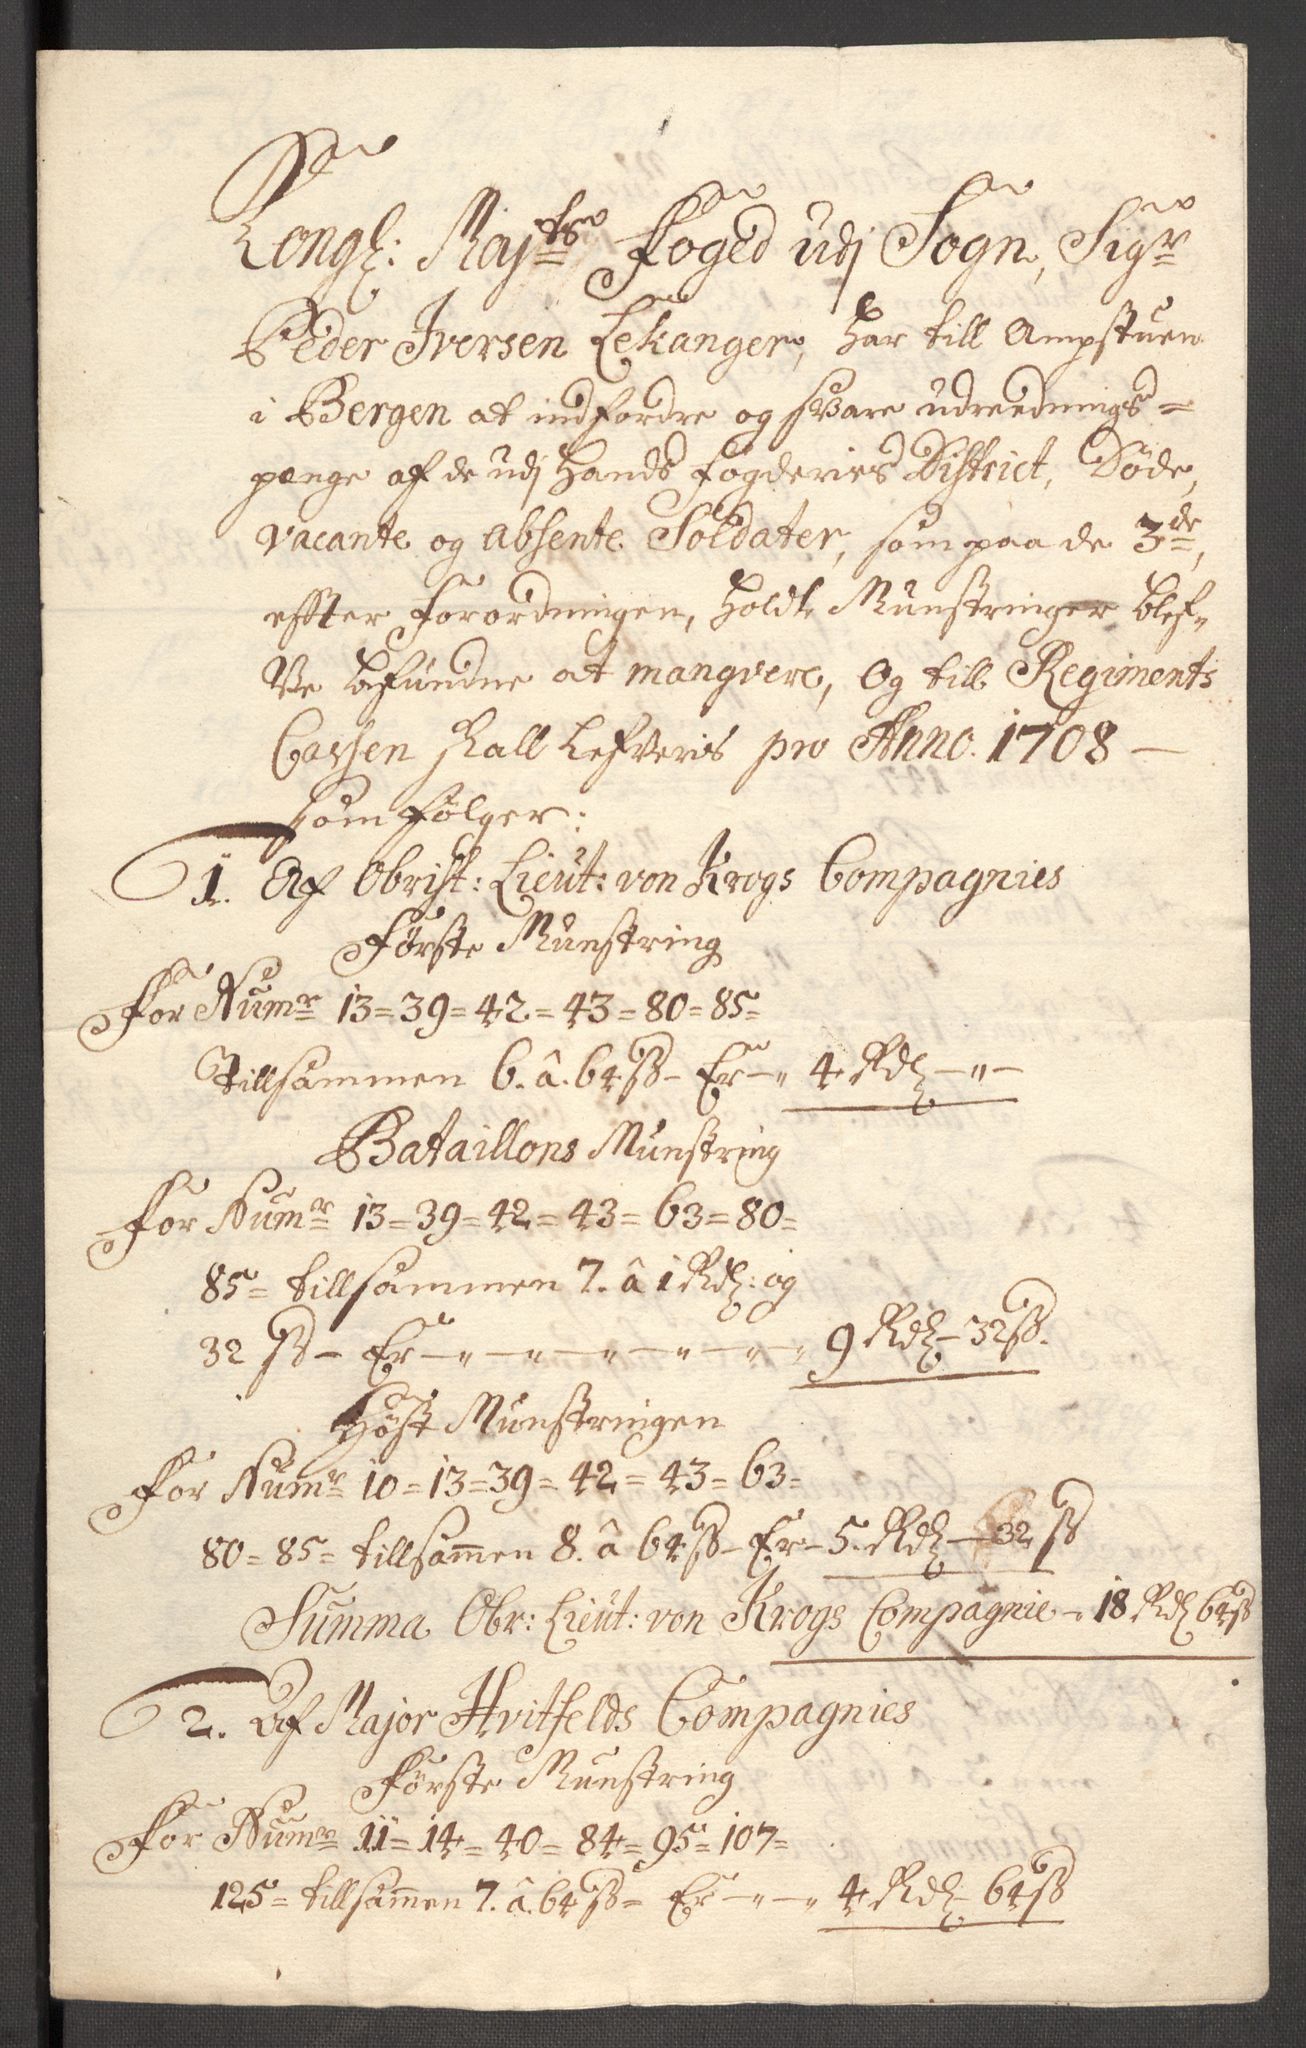 Kongl: Maj:ts Foged udj Sogn, Sigr
Peder Iversen Lekanger, har till Ampstuen
i Bergen at indfordre og svare udreednings=
penge af de udj hands fogderies District, Døde,
vacante og absente Soldater, som paa de 3de,
effter forordningen, holdte Munstringer blef=
ve befundne at mangvere, og till Regiments
Cassen skall lefveris pro Anno. 1708 —
som følger:
1. Af Obrist: Lieut: von Krogs Compagnies
Første Munstring
For Numr 13=39=42=43=80=85=
tillsammen 6. â. 64 ß – Er –„ 4 Rdl –„–
Bataillons Munstring
For Numr 13=39=42=43=63=80=
85= tillsammen 7. â 1 Rdl: og
32 ß – Er –„–„–„–„–„–„ 9 Rdl – 32 ß.
Høst Munstringen
For Numr 10=13=39=42=43=63=
80=85= tillsam̄en 8. â 64 ß – Er – 5. Rdl – 32 ß
Summa Obr: Lieut: von Krogs Compagnie – 18 Rdl 64 ß
2. Af Major Hvitfelds Compagnies
Første Munstring
For Numr 11=14=40=84=95=107=
125= tillsam̄en 7. â. 64 ß = Er –„–„ 4 Rdl – 64 ß